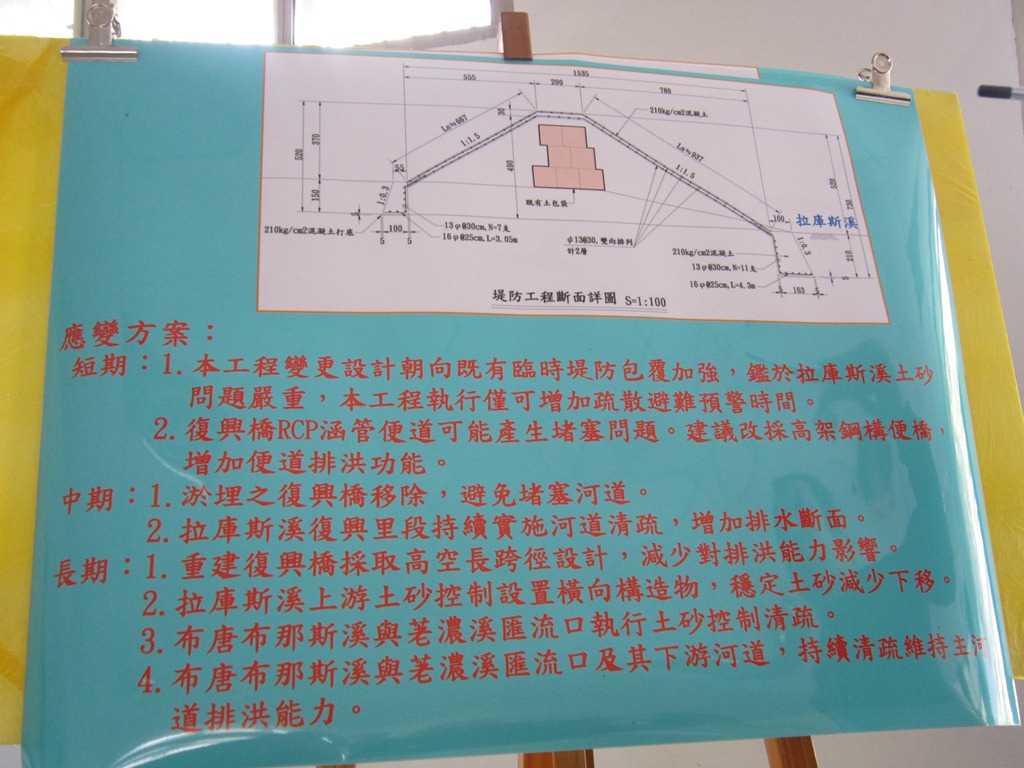 1535
555
200
780
30
210kg/cm2混凝土
La≒667
La≒937
1:1.5
1:1.5
520
370
490
520
730
55
既有土包袋
150
1:0.3
100
拉庫斯溪
1:0.3
5
210kg/cm2混凝土打底
100
5
5
13φ@30cm,N=7支
16φ@25cm,L=3.05m
φ13@30,雙向排列
計2層
210kg/cm2混凝土
210
13φ@30cm,N=11支
16φ@25cm,L=4.3m
5
5
163
5
堤防工程斷面詳圖 S=1:100
應變方案：
短期：1.本工程變更設計朝向既有臨時堤防包覆加強，鑑於拉庫斯溪土砂
問題嚴重，本工程執行僅可增加疏散避難預警時間。
2.復興橋RCP涵管便道可能產生堵塞問題。建議改採高架鋼構便橋，
增加便道排洪功能。
中期：1.淤埋之復興橋移除，避免堵塞河道。
2.拉庫斯溪復興里段持續實施河道清疏，增加排水斷面。
長期：1.重建復興橋採取高空長跨徑設計，減少對排洪能力影響。
2.拉庫斯溪上游土砂控制設置橫向構造物，穩定土砂減少下移。
3.布唐布那斯溪與荖濃溪匯流口執行土砂控制清疏。
4.布唐布那斯溪與荖濃溪匯流口及其下游河道，持續清疏維持主河
道排洪能力。